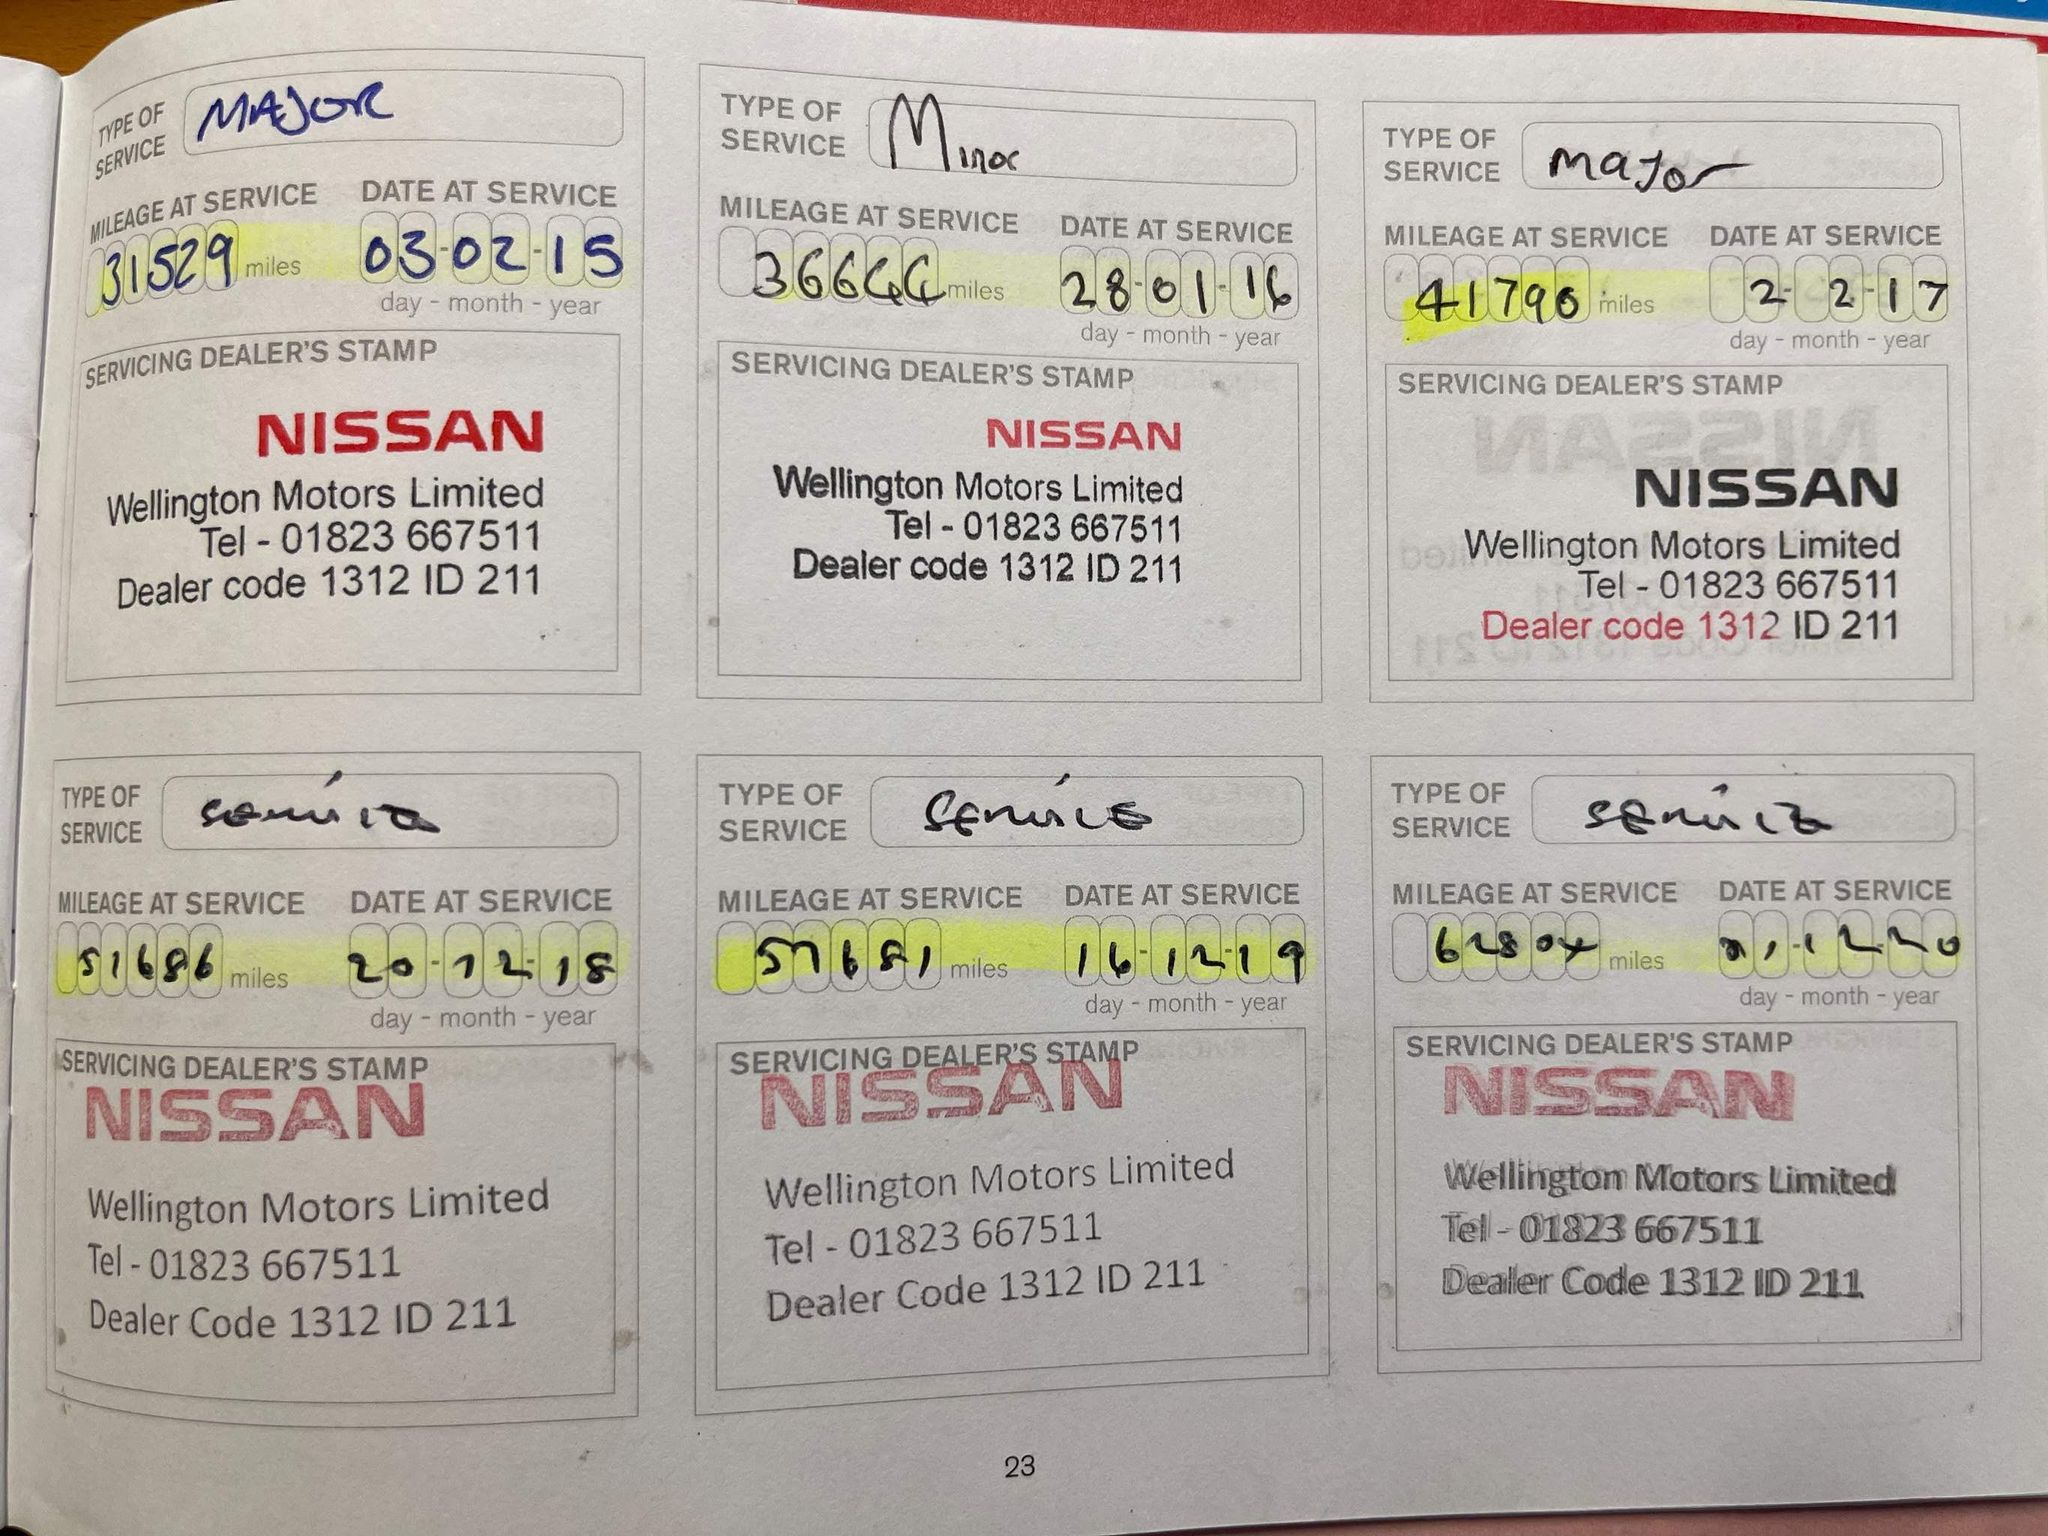 TYPE OF SERVICE MAJOR
MILEAGE AT SERVICE DATE AT SERVICE
31529 miles 03-02-15
day - month - year
SERVICING DEALER'S STAMP
NISSAN
Wellington Motors Limited
Tel - 01823 667511
Dealer code 1312 ID 211
TYPE OF SERVICE Minor
MILEAGE AT SERVICE DATE AT SERVICE
miles 28-01-16
day - month - year
SERVICING DEALER'S STAMP
NISSAN
Wellington Motors Limited
Tel - 01823 667511
Dealer code 1312 ID 211
TYPE OF SERVICE major
MILEAGE AT SERVICE DATE AT SERVICE
41790 miles 2-2-17
day - month - year
SERVICING DEALER'S STAMP
NISSAN
Wellington Motors Limited
Tel - 01823 667511
Dealer code 1312 ID 211
TYPE OF SERVICE service
MILEAGE AT SERVICE DATE AT SERVICE
51686 miles 20-12-18
day - month - year
SERVICING DEALER'S STAMP
NISSAN
Wellington Motors Limited
Tel - 01823 667511
Dealer Code 1312 ID 211
TYPE OF SERVICE service
MILEAGE AT SERVICE DATE AT SERVICE
57681 miles 16-12-19
day - month - year
SERVICING DEALER'S STAMP
NISSAN
Wellington Motors Limited
Tel - 01823 667511
Dealer Code 1312 ID 211
TYPE OF SERVICE service
MILEAGE AT SERVICE DATE AT SERVICE
62804 miles
day - month - year
SERVICING DEALER'S STAMP
NISSAN
Wellington Motors Limited
Tel - 01823 667511
Dealer Code 1312 ID 211
23